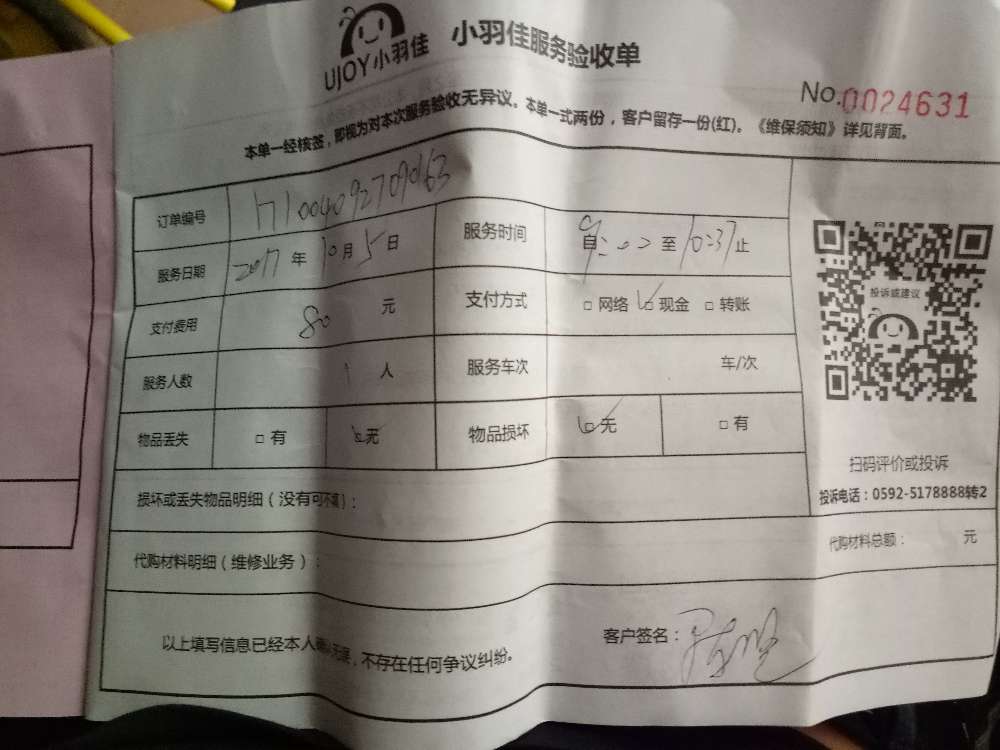 UJOY小羽佳
小羽佳服务验收单
No.0024631
本单一经核签，即视为对本次服务验收无异议。本单一式两份，客户留存一份(红)。《维保须知》详见背面。
订单编号
服务日期 2017 年 10 月 5 日 服务时间 自 至 10:37 止
支付费用 80 元 支付方式 □ 网络 □ 现金 □ 转账
服务人数 1 人 服务车次 车/次
物品丢失 □ 有 □ 无 物品损坏 □ 无 □ 有
投诉或建议
扫码评价或投诉
投诉电话：0592-5178888转2
损坏或丢失物品明细（没有可不填）：
代购材料明细（维修业务）： 代购材料总额： 元
以上填写信息已经本人确认无误，不存在任何争议纠纷。 客户签名：